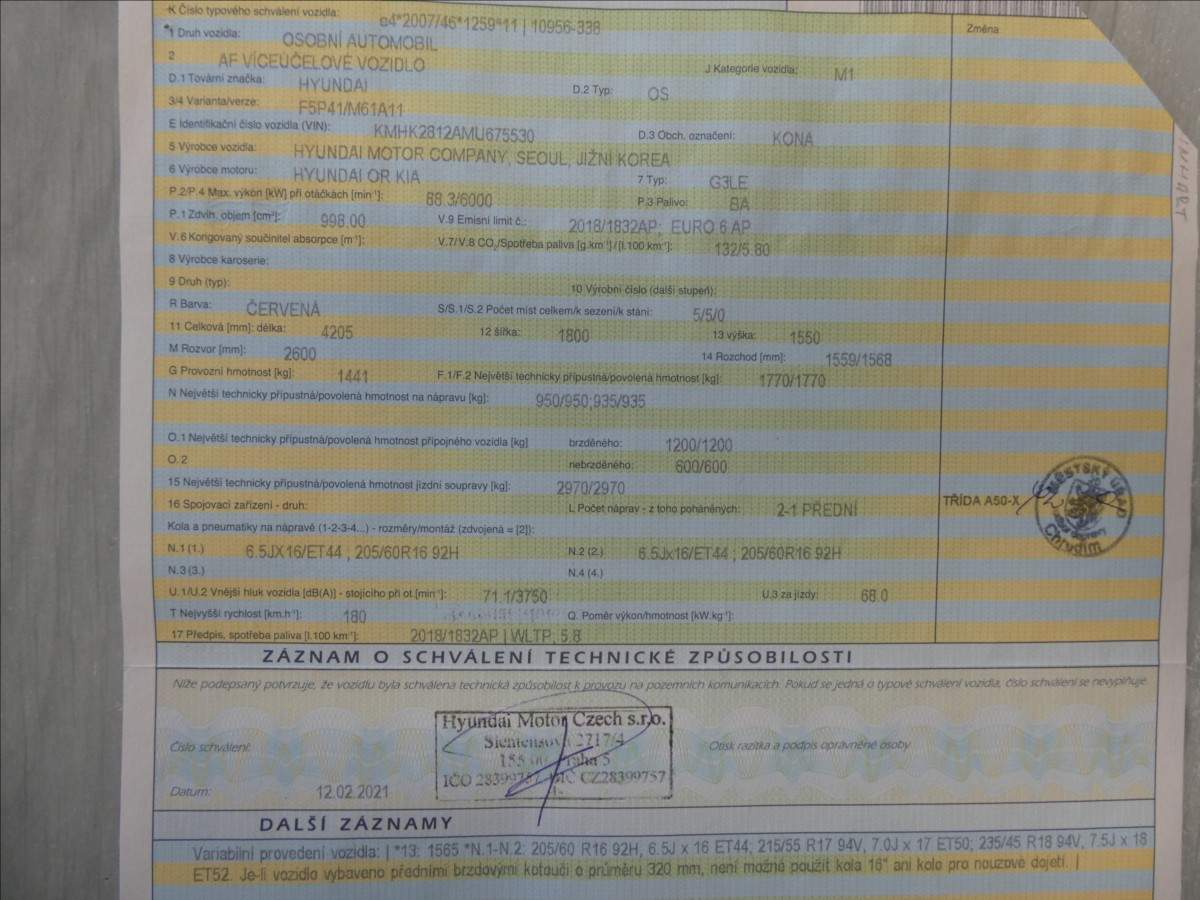 K Číslo typového schválení vozidla: e4*2007/46*1259*11 | 10956-338
Změna
*1 Druh vozidla: OSOBNÍ AUTOMOBIL
2 AF VÍCEÚČELOVÉ VOZIDLO J Kategorie vozidla: M1
D.1 Tovární značka: HYUNDAI D.2 Typ: OS
3/4 Varianta/verze: F5P41/M61A11
E Identifikační číslo vozidla (VIN): KMHK2812AMU675530 D.3 Obch. označení: KONA
5 Výrobce vozidla: HYUNDAI MOTOR COMPANY, SEOUL, JIŽNÍ KOREA
6 Výrobce motoru: HYUNDAI OR KIA 7 Typ: G3LE
P.2/P.4 Max. výkon [kW] při otáčkách [min⁻¹]: 88.3/6000 P.3 Palivo: BA
P.1 Zdvih. objem [cm³]: 998.00 V.9 Emisní limit č.: 2018/1832AP; EURO 6 AP
V.6 Korigovaný součinitel absorpce [m⁻¹]: V.7/V.8 CO₂/Spotřeba paliva [g.km⁻¹]/[l.100 km⁻¹]: 132/5.80
8 Výrobce karoserie:
9 Druh (typ): 10 Výrobní číslo (další stupeň):
R Barva: ČERVENÁ S/S.1/S.2 Počet míst celkem/k sezení/k stání: 5/5/0
11 Celková [mm]: délka: 4205 12 šířka: 1800 13 výška: 1550
M Rozvor [mm]: 2600 14 Rozchod [mm]: 1559/1568
G Provozní hmotnost [kg]: 1441 F.1/F.2 Největší technicky přípustná/povolená hmotnost [kg]: 1770/1770
N Největší technicky přípustná/povolená hmotnost na nápravu [kg]: 950/950;935/935
O.1 Největší technicky přípustná/povolená hmotnost přípojného vozidla [kg] brzděného: 1200/1200
O.2 nebrzděného: 600/600
15 Největší technicky přípustná/povolená hmotnost jízdní soupravy [kg]: 2970/2970
16 Spojovací zařízení - druh: L Počet náprav - z toho poháněných: 2-1 PŘEDNÍ
TŘÍDA A50-X
MĚSTSKÝ ÚŘAD
Chrudim
Kola a pneumatiky na nápravě (1-2-3-4...) - rozměry/montáž (zdvojená = [2]):
N.1 (1.) 6.5JX16/ET44 ; 205/60R16 92H N.2 (2.) 6.5JX16/ET44 ; 205/60R16 92H
N.3 (3.) N.4 (4.)
U.1/U.2 Vnější hluk vozidla [dB(A)] - stojícího při ot.[min⁻¹]: 71.1/3750 U.3 za jízdy: 68.0
T Nejvyšší rychlost [km.h⁻¹]: 180 Q. Poměr výkon/hmotnost [kW.kg⁻¹]:
17 Předpis, spotřeba paliva [l.100 km⁻¹]: 2018/1832AP | WLTP; 5.8
ZÁZNAM O SCHVÁLENÍ TECHNICKÉ ZPŮSOBILOSTI
Níže podepsaný potvrzuje, že vozidlu byla schválena technická způsobilost k provozu na pozemních komunikacích. Pokud se jedná o typové schválení vozidla, číslo schválení se nevyplňuje.
Hyundai Motor Czech s.r.o.
Siemensova 2717/4
155 00 Praha 5
IČO 28399757 DIČ CZ28399757
Číslo schválení:
Otisk razítka a podpis oprávněné osoby
Datum: 12.02.2021
DALŠÍ ZÁZNAMY
Variabilní provedení vozidla: | *13: 1565 *N.1-N.2: 205/60 R16 92H, 6.5J x 16 ET44; 215/55 R17 94V, 7.0J x 17 ET50; 235/45 R18 94V, 7.5J x 18
ET52. Je-li vozidlo vybaveno předními brzdovými kotouči o průměru 320 mm, není možné použít kola 16" ani kolo pro nouzové dojetí. |